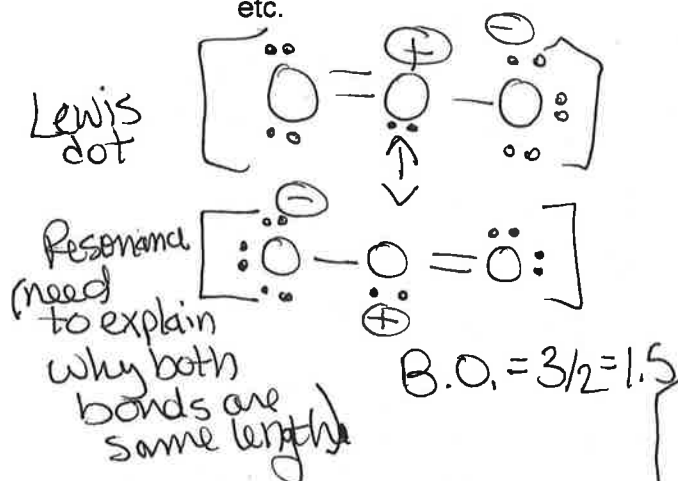 etc.
Lewis
dot
[ O = O — O ]
+
−
↕
Resonance
(need
to explain
why both
bonds are
same length)
[ O — O = O ]
−
+
B.O. = 3/2 = 1.5